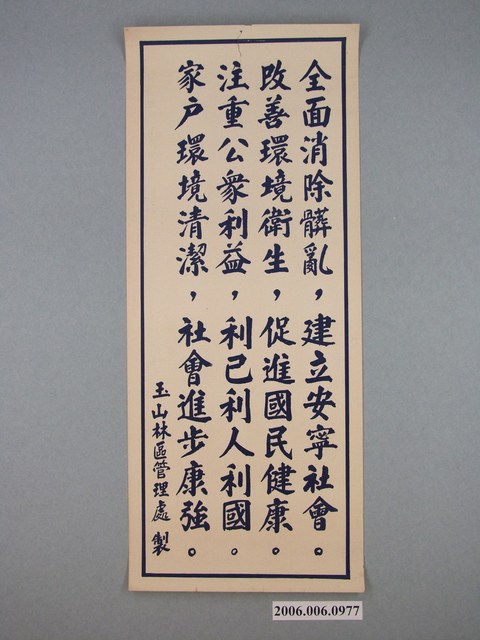 全面消除髒亂，建立安寧社會。
改善環境衛生，促進國民健康。
注重公眾利益，利己利人利國。
家戶環境清潔，社會進步康強。
玉山林區管理處 製
2006.006.0977